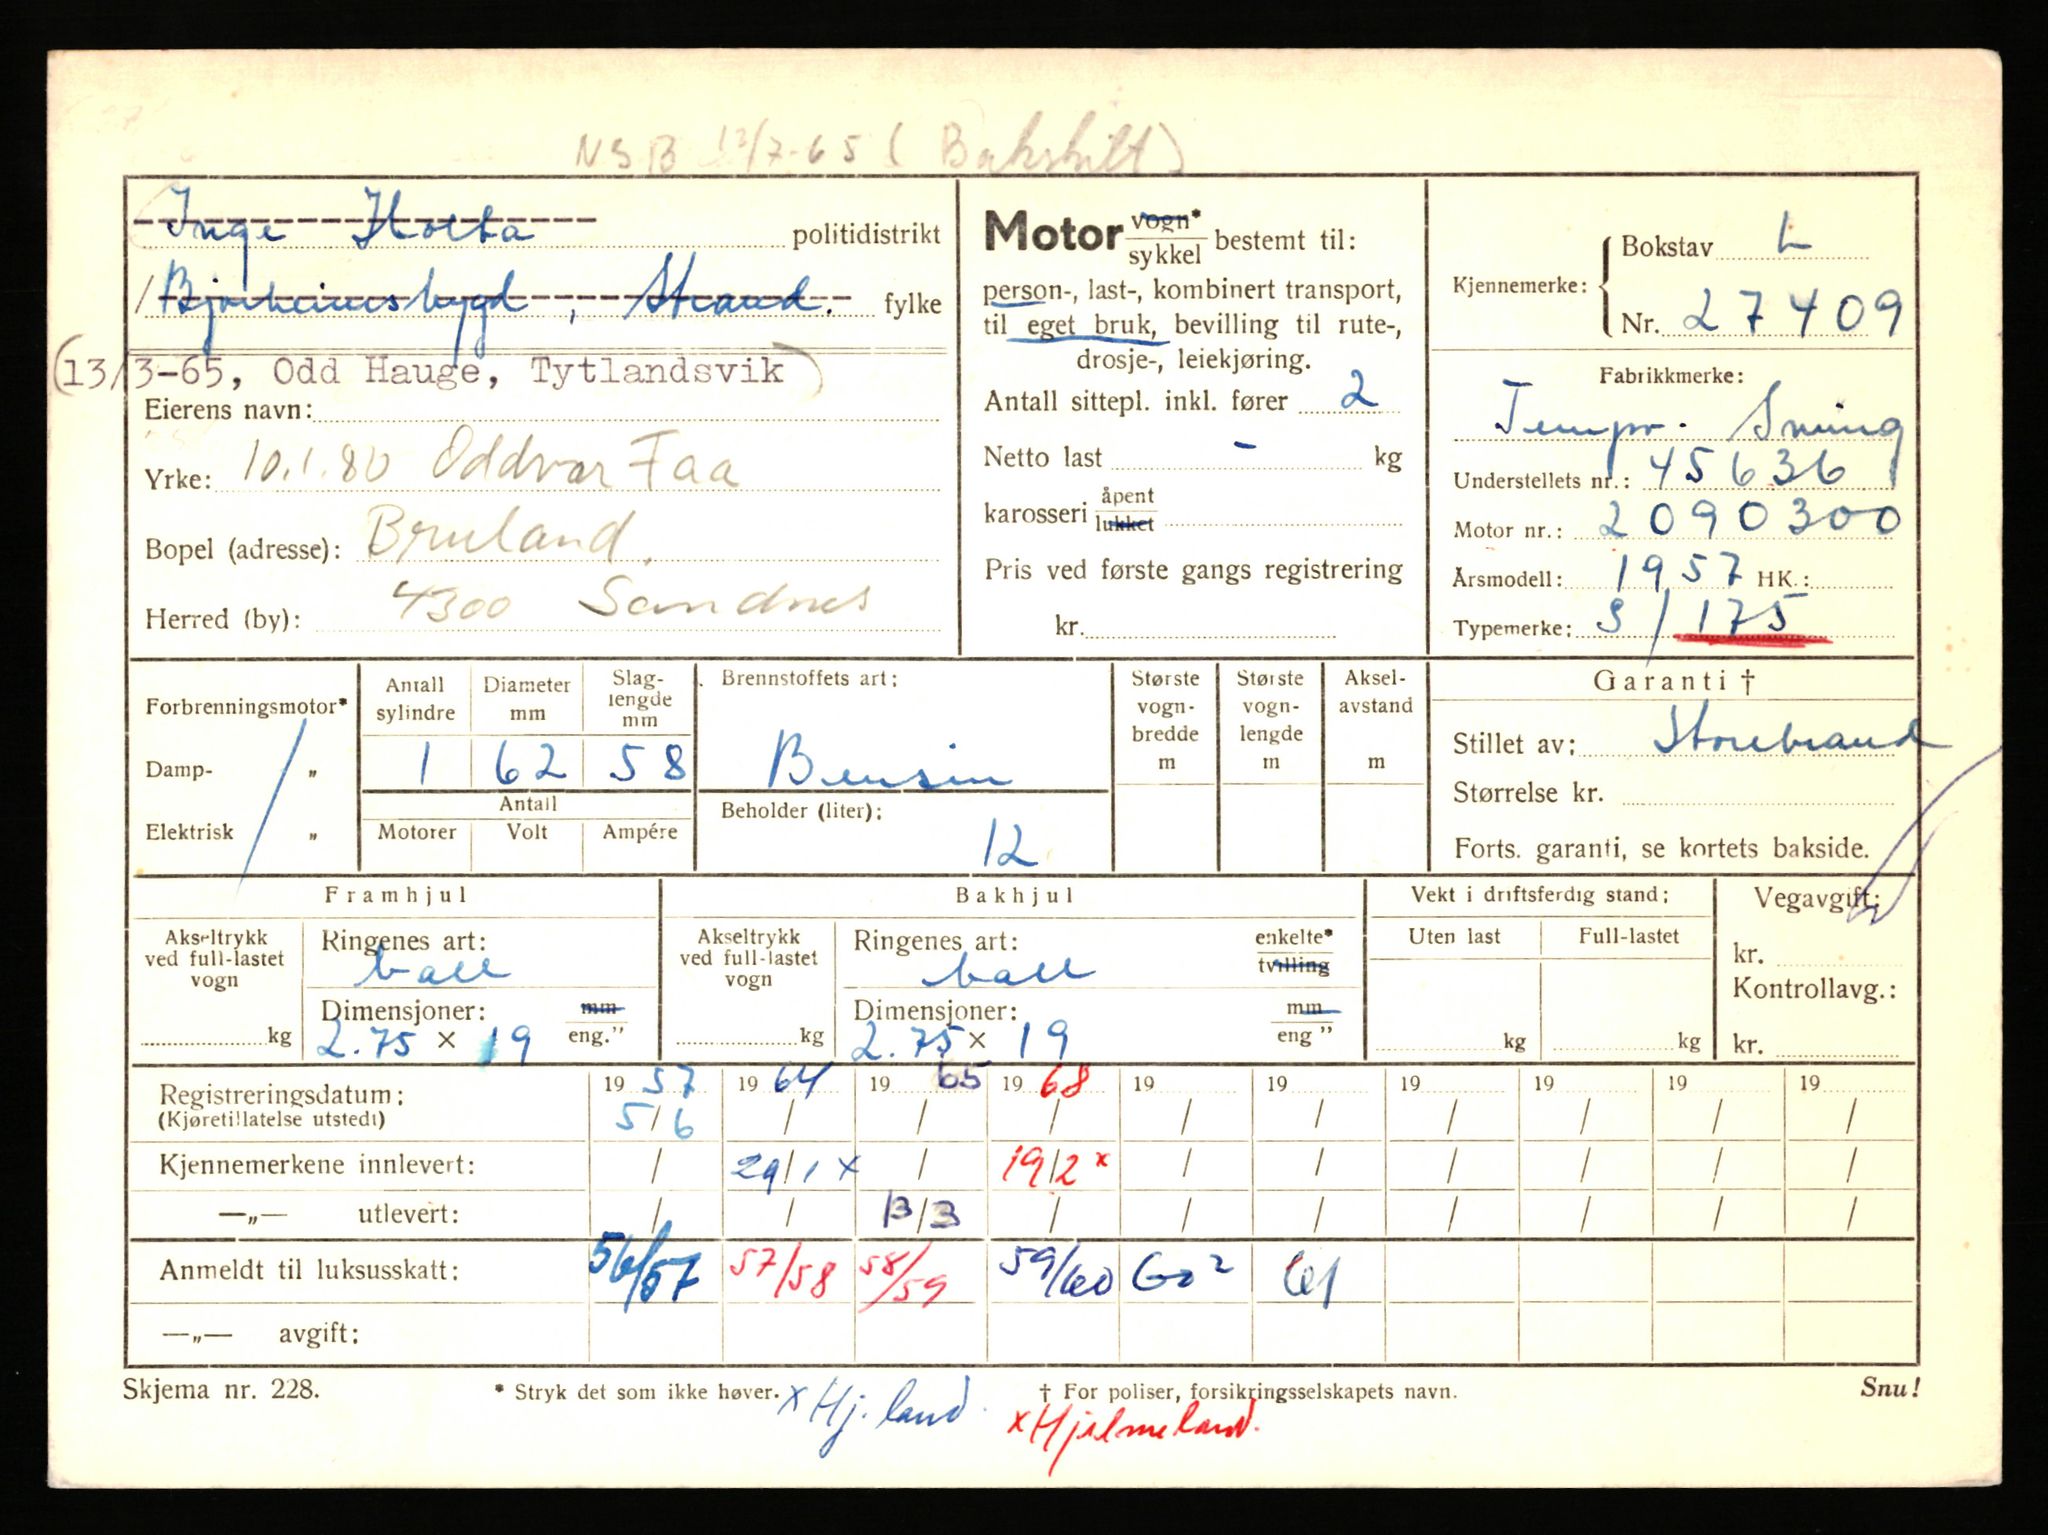 NSB 13/7-65 (Bakskilt)
Inge Holta politidistrikt
Bjørheimsbygd, Strand. fylke
(13/3-65, Odd Hauge, Tytlandsvik)
Eierens navn:
Yrke: 10.1.80 Oddvar Faa
Bopel (adresse): Bruland.
Herred (by): 4300 Sandnes
Motor vogn*
sykkel bestemt til:
person-, last-, kombinert transport,
til eget bruk, bevilling til rute-,
drosje-, leiekjøring.
Antall sittepl. inkl. fører 2
Netto last - kg
karosseri åpent
lukket
Pris ved første gangs registrering
kr.
Kjennemerke: Bokstav L
Nr. 27409
Fabrikkmerke:
Tempo. Swing
Understellets nr.: 45636
Motor nr.: 2090300
Årsmodell: 1957 HK.:
Typemerke: S/175
Forbrenningsmotor*
Damp- „
Elektrisk „
Antall sylindre Diameter mm Slaglengde mm
1 62 58
Antall
Motorer Volt Ampére
Brennstoffets art:
Bensin
Beholder (liter):
12
Største vognbredde m
Største vognlengde m
Akselavstand m
Garanti †
Stillet av: Storebrand
Størrelse kr.
Forts. garanti, se kortets bakside.
Framhjul
Akseltrykk
ved full-lastet
vogn
kg
Ringenes art:
ball
Dimensjoner: mm
2.75 × 19 eng."
Bakhjul
Akseltrykk
ved full-lastet
vogn
kg
Ringenes art: enkelte*
ball tvilling
Dimensjoner: mm
2.75 × 19 eng"
Vekt i driftsferdig stand:
Uten last Full-lastet
kg kg
Vegavgift:
kr.
Kontrollavg.:
kr.
Registreringsdatum: 19 57 19 64 19 65 19 68 19 19 19 19 19 19
(Kjøretillatelse utstedt) 5/6 / / / / / / / / /
Kjennemerkene innlevert: / 29/1 x / 19/2 x / / / / / /
—„— utlevert: / / 13/3 / / / / / / /
Anmeldt til luksusskatt: 56/57 57/58 58/59 59/60 60² 61
—„— avgift:
Skjema nr. 228. * Stryk det som ikke høver. † For poliser, forsikringsselskapets navn. Snu!
x Hj.land. x Hjelmeland.